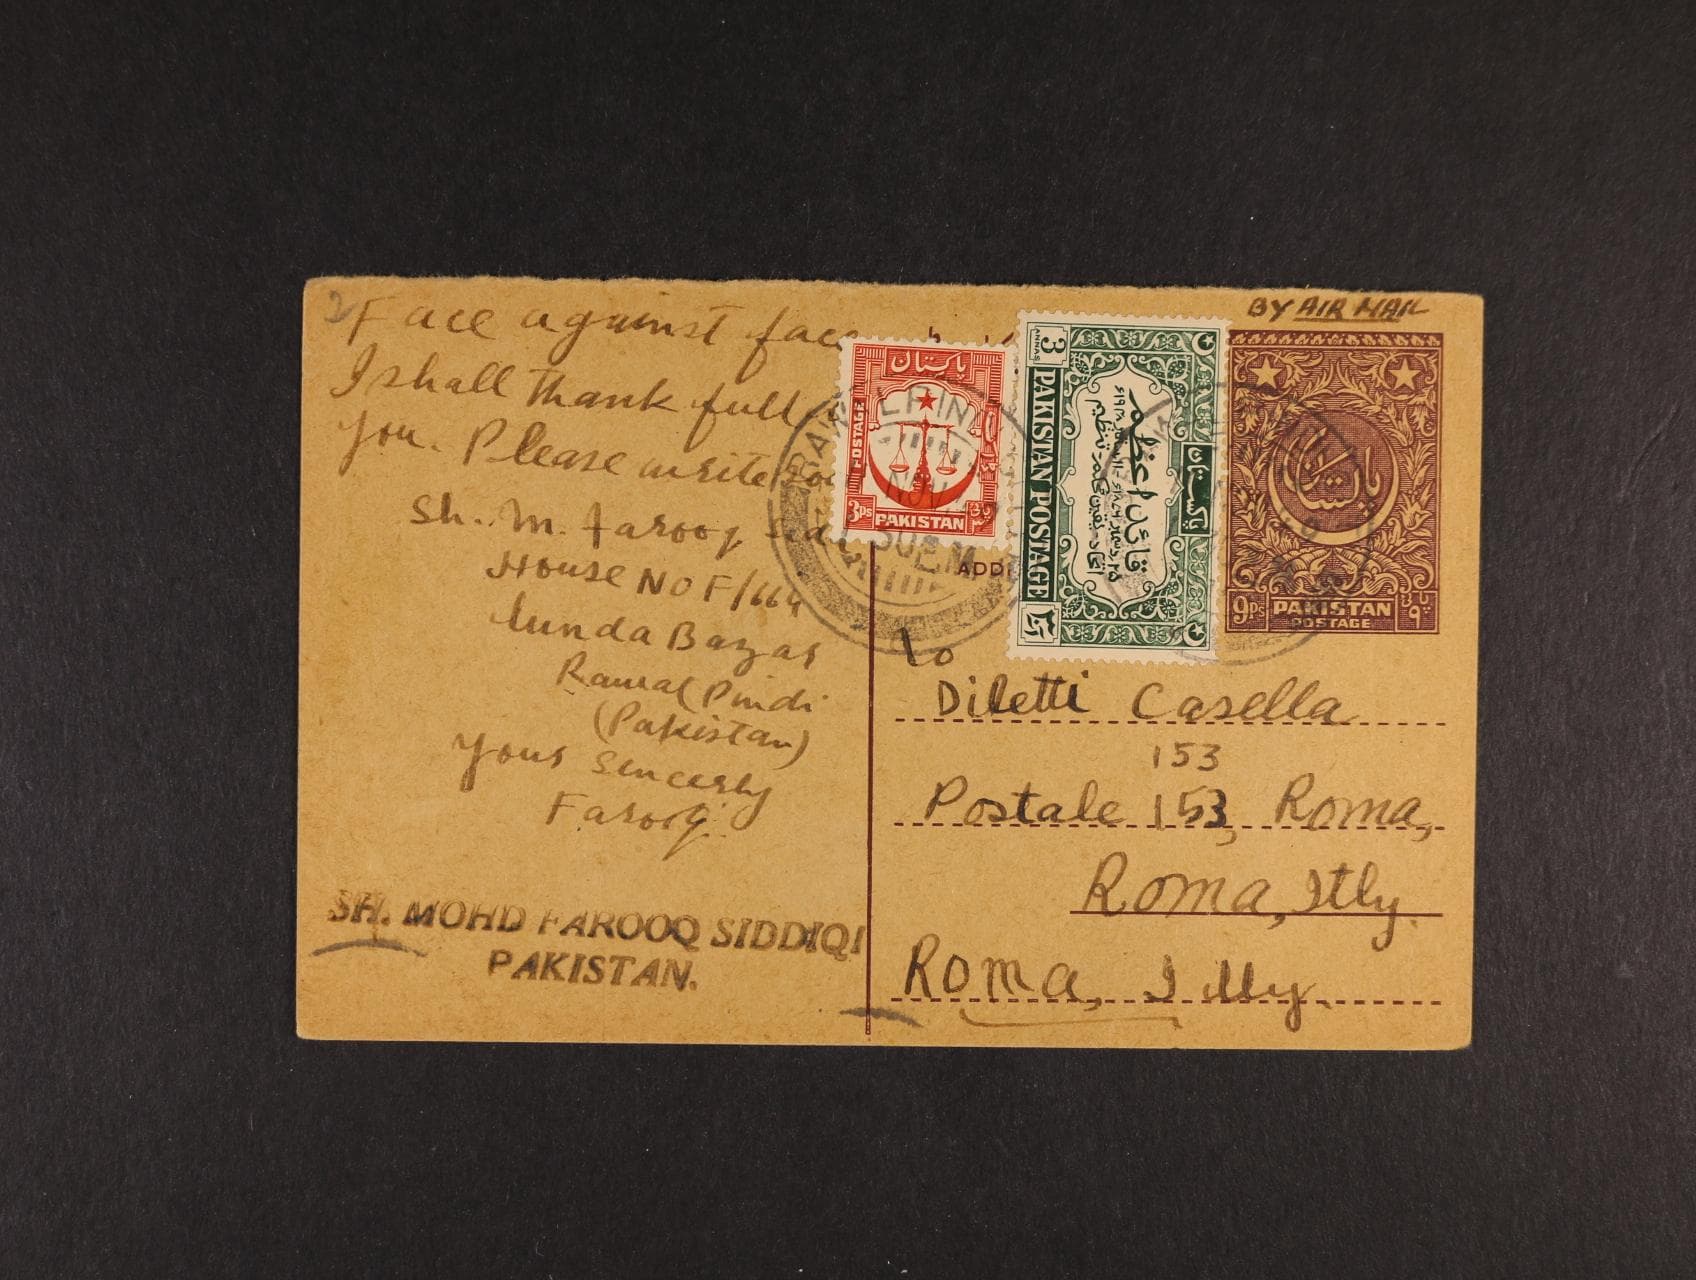 2 Face against face
I shall thank full
you. Please write
Sh. M. Farooq
House No F/664
Lunda Bazar
RawalPindi
(Pakistan)
your Sencerly
Farooq.
SH. MOHD FAROOQ SIDDIQI
PAKISTAN.
BY AIR MAIL
پاکستان
POSTAGE
3PS
PAKISTAN
RAWALPINDI
NOV
3 ANNAS
PAKISTAN POSTAGE
پاکستان
قائد اعظم
اتحاد یقین محکم تنظیم
پاکستان
9PS
PAKISTAN
POSTAGE
۹ پائی
To
Diletti Casella
153
Postale 153, Roma,
Roma, Itly.
Roma, Itly.